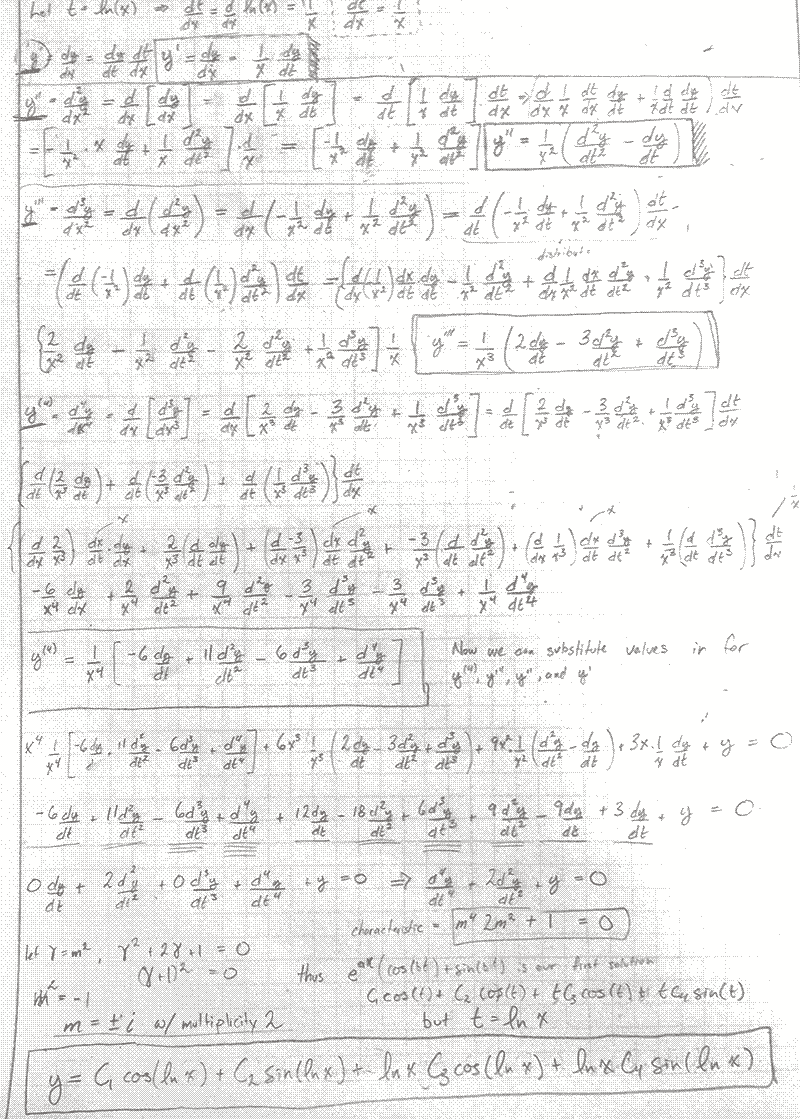 Let t = ln(x) ⇒ dt/dx = d/dx ln(x) = 1/x dt/dx = 1/x
y' = dy/dx = dy/dt dt/dx y' = dy/dx = 1/x dy/dt
y'' = d²y/dx² = d/dx [dy/dx] = d/dx [1/x dy/dt] = d/dt [1/x dy/dt] dt/dx ⇒ (d/dx 1/x dx/dt dy/dt + 1/x d/dt dy/dt) dt/dx
= [-1/x² · x dy/dt + 1/x d²y/dt²] · 1/x = [-1/x² dy/dt + 1/x² d²y/dt²] y'' = 1/x² (d²y/dt² - dy/dt)
y''' = d³y/dx³ = d/dx (d²y/dx²) = d/dx (-1/x² dy/dt + 1/x² d²y/dt²) = d/dt (-1/x² dy/dt + 1/x² d²y/dt²) dt/dx
distribute
= (d/dt (-1/x²) dy/dt + d/dt (1/x²) d²y/dt²) dt/dx = {d/dx (-1/x²) dx/dt dy/dt - 1/x² d²y/dt² + d/dx 1/x² dx/dt d²y/dt² + 1/x² d³y/dt³} dt/dx
{2/x² dy/dt - 1/x² d²y/dt² - 2/x² d²y/dt² + 1/x² d³y/dt³] 1/x y''' = 1/x³ (2dy/dt - 3d²y/dt² + d³y/dt³)
y⁽⁴⁾ = d⁴y/dx⁴ = d/dx [d³y/dx³] = d/dx [2/x³ dy/dt - 3/x³ d²y/dt² + 1/x³ d³y/dt³] = d/dt [2/x³ dy/dt - 3/x³ d²y/dt² + 1/x³ d³y/dt³] dt/dx
{d/dt (2/x³ dy/dt) + d/dt (-3/x³ d²y/dt²) + d/dt (1/x³ d³y/dt³)} dt/dx
x x x 1/x
{(d/dx 2/x³) dx/dt · dy/dx + 2/x³ (d/dt dy/dt) + (d/dx -3/x³) dx/dt d²y/dt² + -3/x³ (d/dt d²y/dt²) + (d/dx 1/x³) dx/dt d³y/dt² + 1/x³ (d/dt d³y/dt³)} dt/dx
-6/x⁴ dy/dx + 2/x⁴ d²y/dt² + 9/x⁴ d²y/dt² - 3/x⁴ d³y/dt³ - 3/x⁴ d³y/dt³ + 1/x⁴ d⁴y/dt⁴
y⁽⁴⁾ = 1/x⁴ [-6dy/dt + 11d²y/dt² - 6d³y/dt³ + d⁴y/dt⁴]
Now we can substitute values in for
y⁽⁴⁾, y''', y'', and y'
x⁴ 1/x⁴ [-6dy/dt + 11d²y/dt² - 6d³y/dt³ + d⁴y/dt⁴] + 6x³ 1/x³ (2dy/dt - 3d²y/dt² + d³y/dt³) + 9x² · 1/x² (d²y/dt² - dy/dt) + 3x · 1/x dy/dt + y = 0
-6dy/dt + 11d²y/dt² - 6d³y/dt³ + d⁴y/dt⁴ + 12dy/dt - 18d²y/dt² + 6d³y/dt³ + 9d²y/dt² - 9dy/dt + 3dy/dt + y = 0
0 dy/dt + 2d²y/dt² + 0 d³y/dt³ + d⁴y/dt⁴ + y = 0 ⇒ d⁴y/dt⁴ + 2d²y/dt² + y = 0
characteristic = m⁴ 2m² + 1 = 0
let γ = m², γ² + 2γ + 1 = 0
(γ+1)² = 0
thus e^(at) (cos(bt) + sin(bt) is our first solution
m² = -1
C₁cos(t) + C₂ cos(t) + tC₃cos(t) + tC₄ sin(t)
m = ±i w/ multiplicity 2
but t = ln x
y = C₁ cos(ln x) + C₂ sin(ln x) + ln x C₃ cos(ln x) + ln x C₄ sin(ln x)